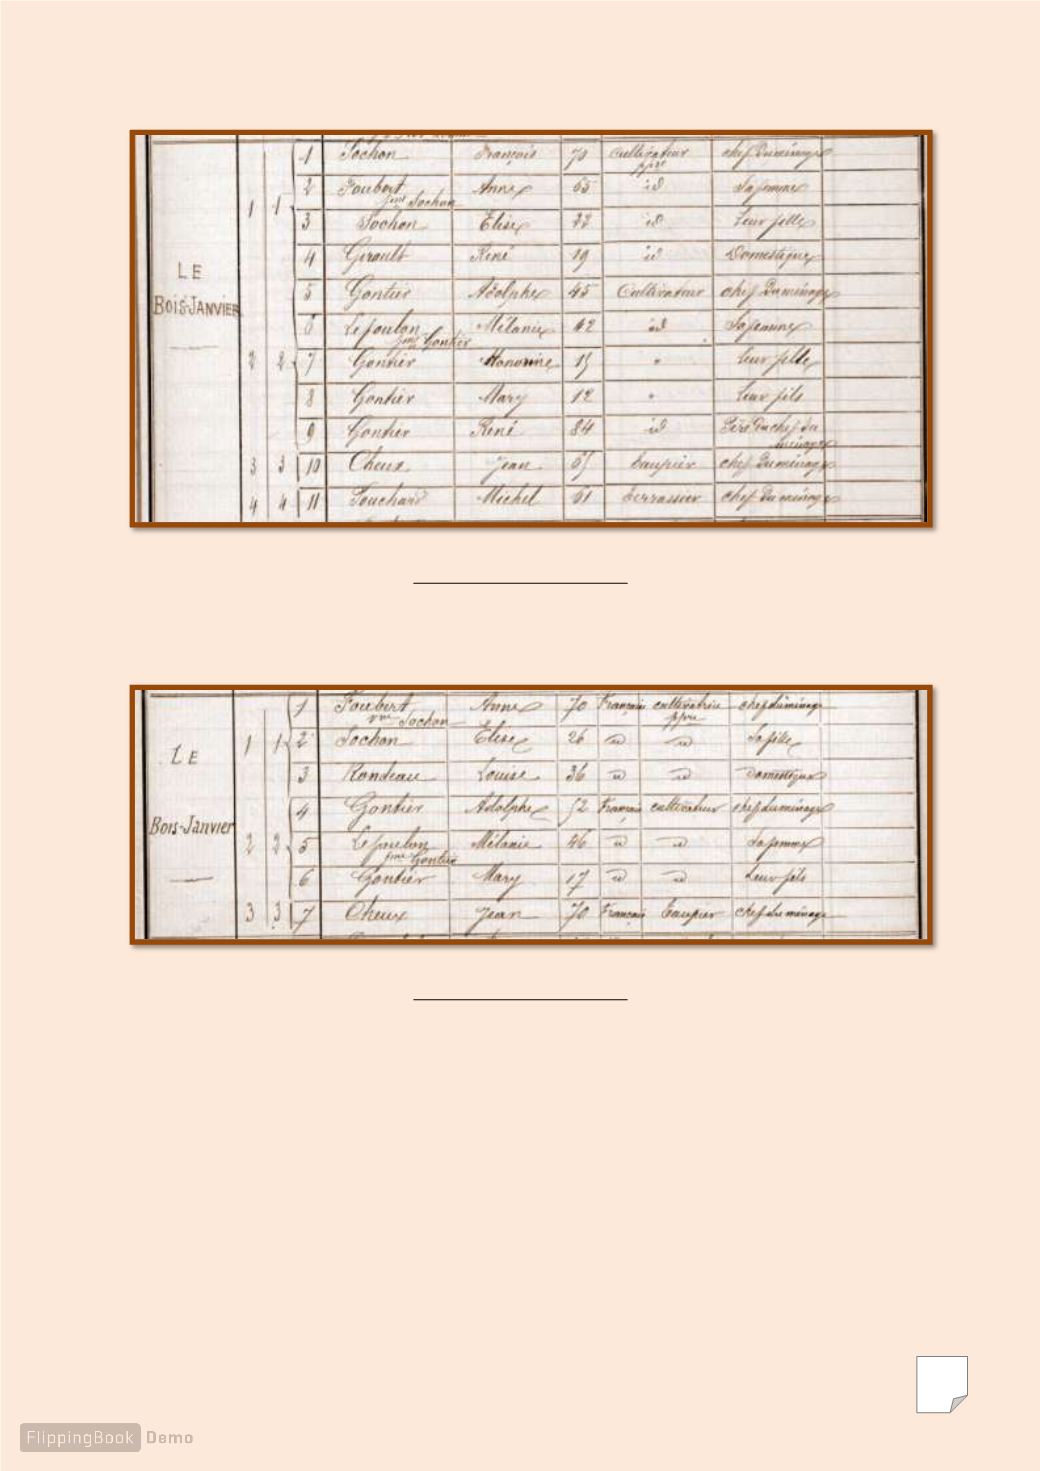 1 Sochon François 70 cultivateur ppre chef du ménage
2 Foubert fme Sochon Anne 65 id Sa femme
1 1
3 Sochon Elise 22 id leur fille
4 Girault René 19 id Domestique
LE
BOIS-JANVIER
5 Gontier Adolphe 45 Cultivateur chef du ménage
6 Lefoulon fme Gontier Mélanie 42 id Sa femme
2 2 7 Gontier Honorine 15 " leur fille
8 Gontier Mary 12 " leur fils
9 Gontier René 84 id Père du chef du ménage
3 3 10 Cheux Jean 65 Taupier chef du ménage
4 4 11 Touchard Michel 61 terrassier chef du ménage
1 Foubert vve Sochon Anne 70 Français cultivatrice ppre chef du ménage
1 1 2 Sochon Elise 26 id id Sa fille
LE
3 Rondeau Louise 36 id id domestique
4 Gontier Adolphe 52 Français cultivateur chef du ménage
Bois-Janvier
2 2 5 Lefoulon fme Gontier Mélanie 46 id id Sa femme
6 Gontier Mary 17 id id leur fils
3 3 7 Cheux Jean 70 Français Taupier chef du ménage
FlippingBook Demo